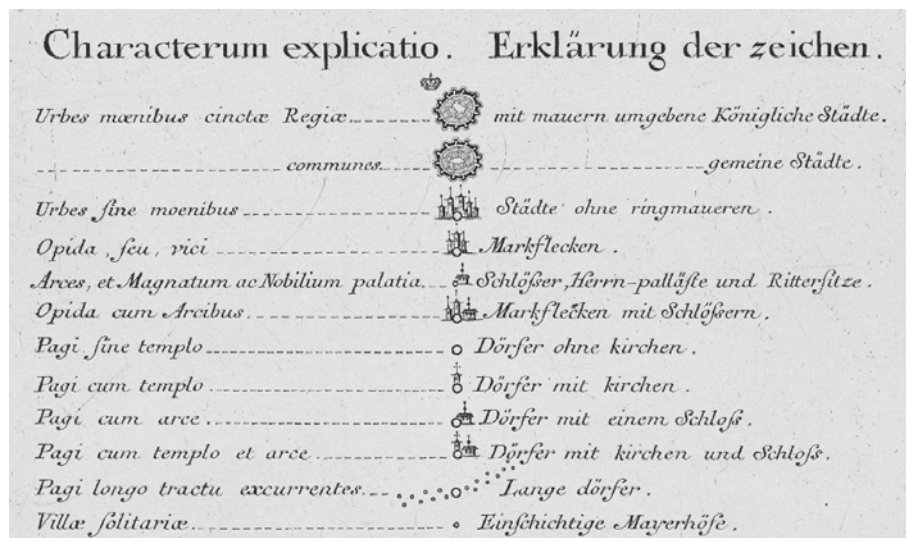 Characterum explicatio. Erklärung der zeichen.
Urbes mœnibus cinctæ Regiæ mit mauern umgebene Königliche Städte.
communes gemeine Städte.
Urbes ſine moenibus Städte ohne ringmaueren.
Opida, ſeu, vici Markflecken.
Arces, et Magnatum ac Nobilium palatia Schlößer, Herrn-palläſte und Ritterſitze.
Opida cum Arcibus Markflecken mit Schlößern.
Pagi ſine templo Dörfer ohne kirchen.
Pagi cum templo Dörfer mit kirchen.
Pagi cum arce Dörfer mit einem Schloſs.
Pagi cum templo et arce Dörfer mit kirchen und Schloſs.
Pagi longo tractu excurrentes Lange dörfer.
Villæ ſolitariæ Einſchichtige Mayerhöfe.